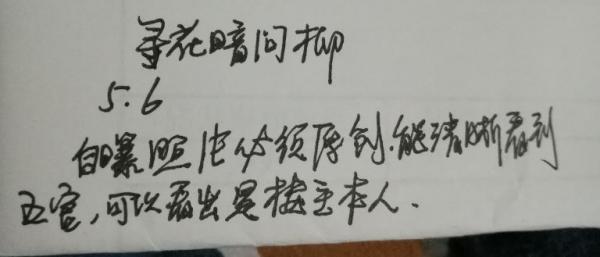 寻花暗问柳
5.6
自曝照片必须原创.能清晰看到
五官，可以看出是楼主本人.